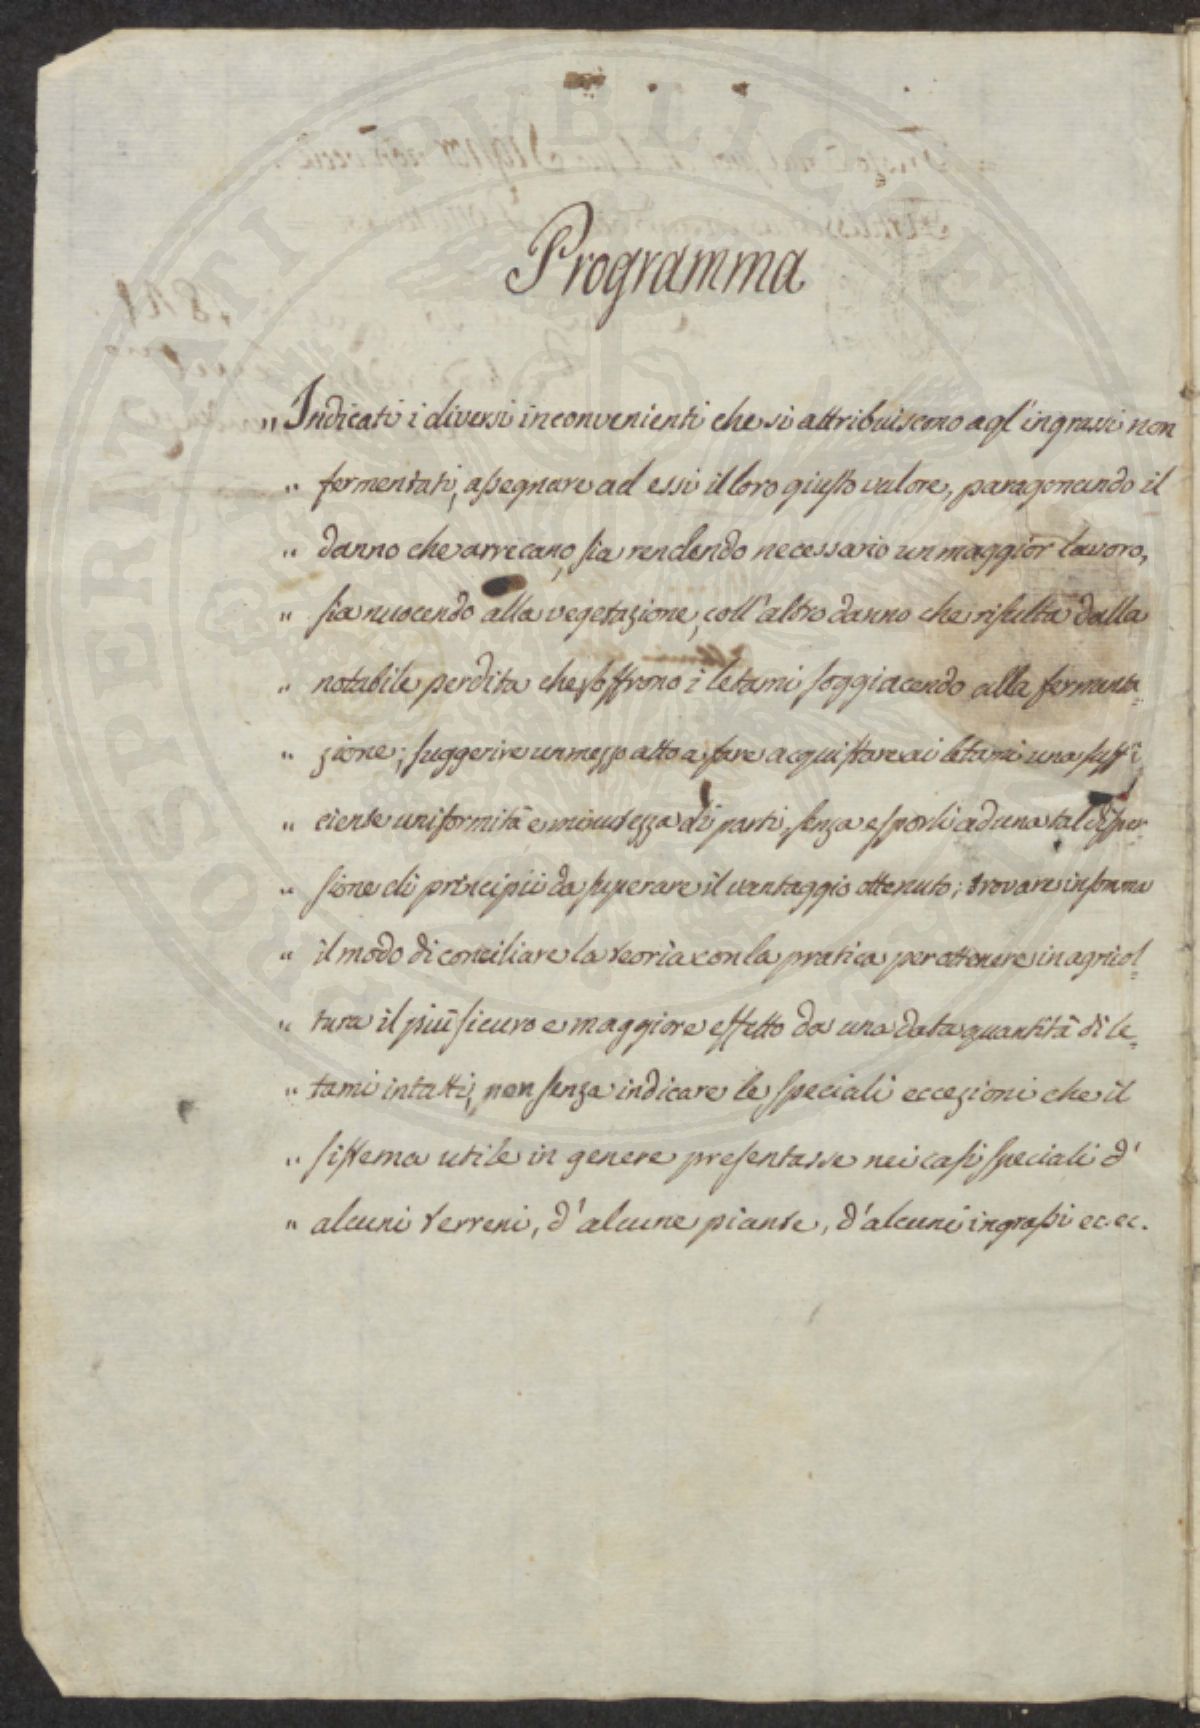 Programma
" Indicati i diversi inconvenienti che si attribuiscono agl' ingrassi non
" fermentati, assegnare ad essi il loro giusto valore, paragonando il
" danno che arrecano, sia rendendo necessario un maggior lavoro,
" sia nuocendo alla vegetazione, coll' altro danno che risulta dalla
" notabile perdita che soffrono i letami soggiacendo alla fermenta=
" zione; suggerire un mezzo atto a fare acquistare ai letami una suffi=
" ciente uniformità e minutezza di parti, senza esporli ad una tal disper=
" sione di principii da superare il vantaggio ottenuto; trovare in somma
" il modo di conciliare la teoria con la pratica per ottenere in agricol=
" tura il più sicuro e maggiore effetto da una data quantità di le=
" tami intatti; non senza indicare le speciali eccezioni che il
" sistema utile in genere presentasse nei casi speciali d'
" alcuni terreni, d'alcune piante, d'alcuni ingrassi ec. ec.
PROSPERITATI PVBLICAE